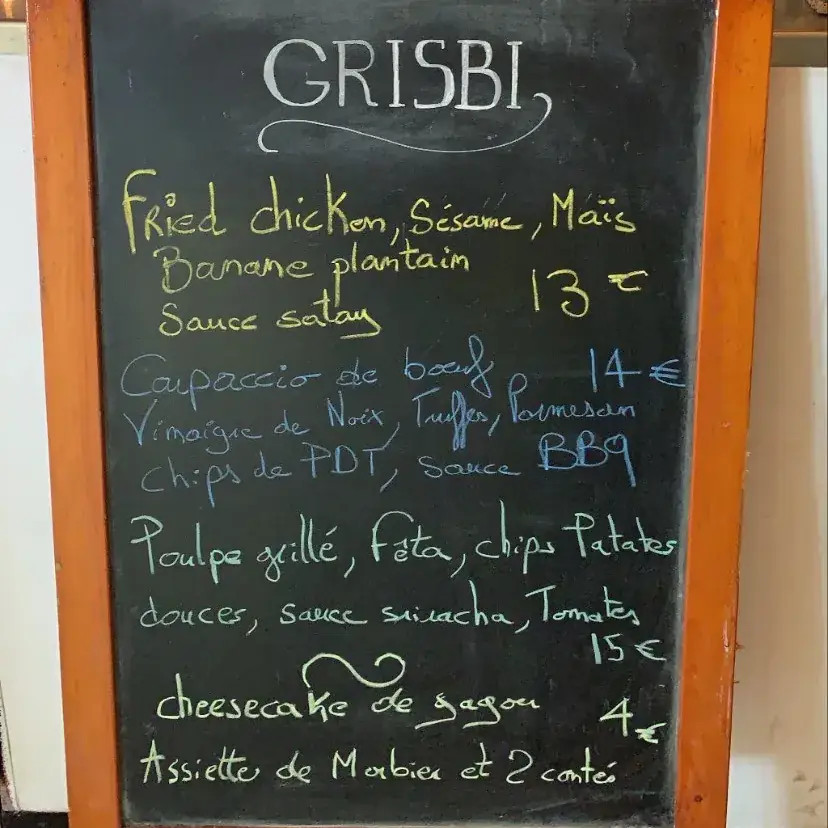 GRISBI
Fried chicken, Sésame, Maïs
Banane plantain
13 €
Sauce satay
Carpaccio de bœuf 14 €
Vinaigre de Noix, Truffes, Parmesan
chips de PDT, sauce BBQ
Poulpe grillé, fêta, chips Patates
douces, sauce sriracha, Tomates
15 €
cheesecake de gagou 4 €
Assiette de Morbier et 2 contés